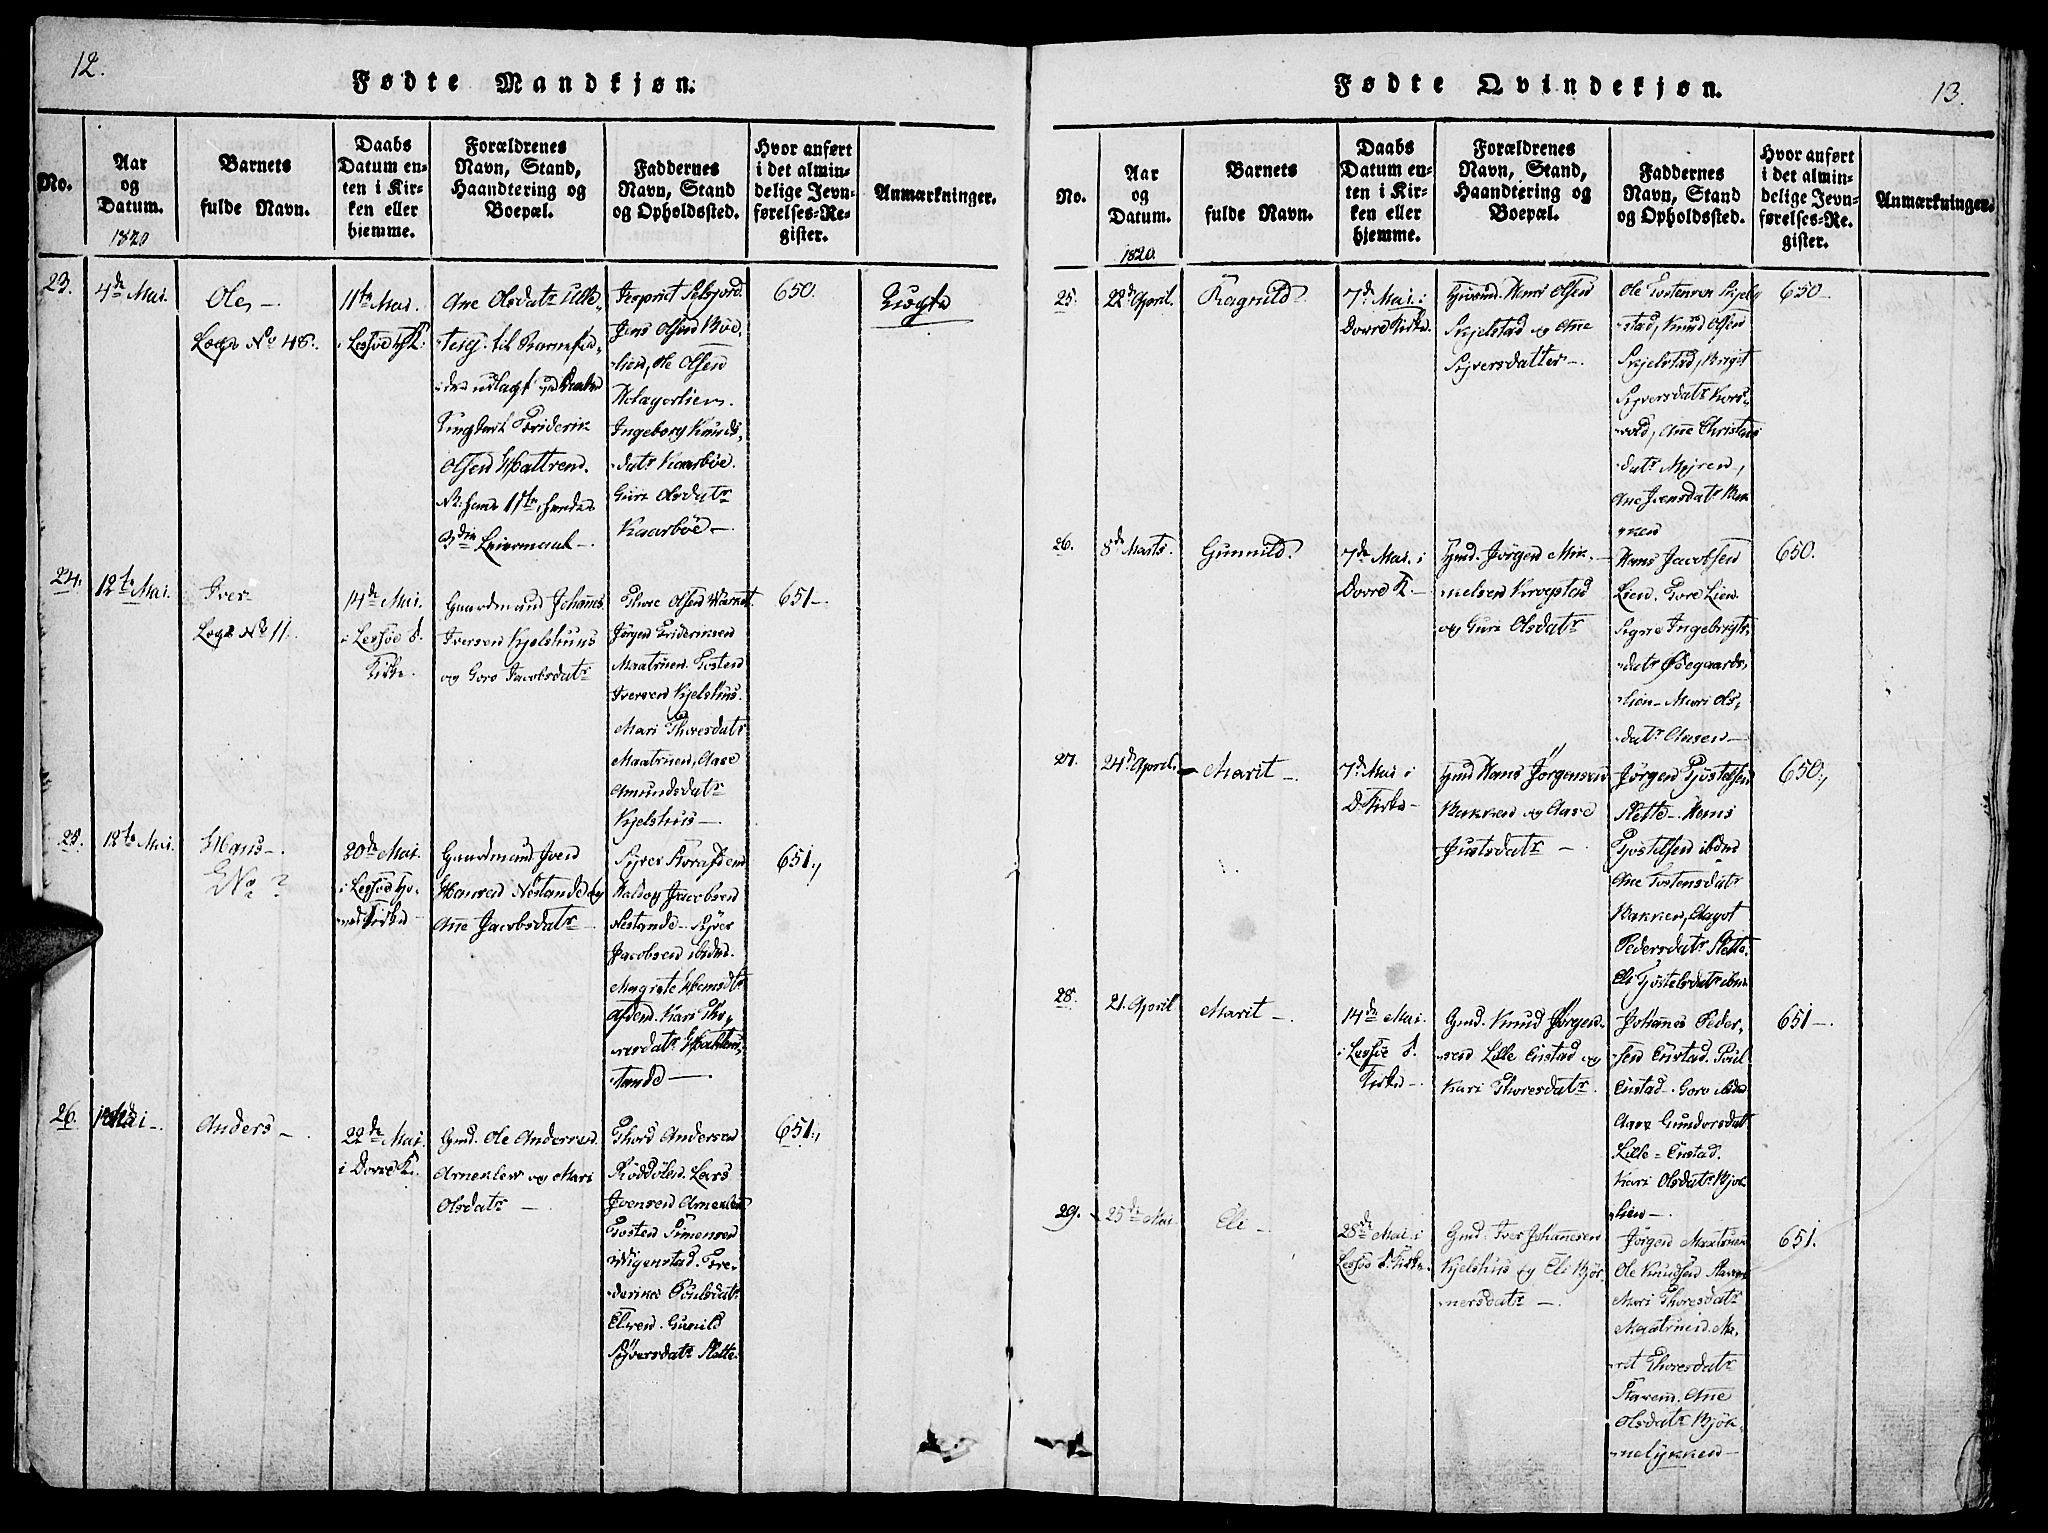 12.
Fødte Mandkjøn.
No.
Aar
og
Datum.
1820
Barnets
fulde Navn.
Daabs
Datum en-
ten i Kir-
ken eller
hjemme.
Forældrenes
Navn, Stand,
Haandtering og
Boepæl.
Faddernes
Navn, Stand
og Opholdssted.
Hvor anført
i det almin-
delige Jevn-
førelses-Re-
gister.
Anmærkninger.
23.
4de Mai.
Ole, -
No 48.
11te Mai.
i Lessøe
Ane Olsdatr Lille-
til Barnefa-
der udlagt
Friderik
Olsen
hans 11te,
3die Leiermaal -.
Jens Olsen Bøe-
lien, Ole Olsen
Ingeborg Knuds-
datr Kaarbøe.
Guri Olsdatr
Kaarbøe -
650.
Uægte
24.
12te Mai.
Iver
No 11.
14de Mai.
i Lessøe
Kirke.
Gaardmand Johannes
Iversen Kjelshuus
og Goro Jacobsdatr
Thore Olsen
Jørgen Frideriksen
Maatruen. Tosten
Iversen Kjelshus.
Mari Thoresdatr
Maatruen, Aase
Amundsdatr
Kjelshuus -.
651 -.
25.
12te Mai.
Hans -.
No ?
20de Mai.
i Lessøe Ho-
Kirke -
Gaardmand Iver
Hansen Nestande og
Ane Jacobsdatr -
Syver
Jacobsen
Nestande - Syver
Jacobsen ibidm.
Magrete
Kari Tho-
resdatr
stande -.
651.,
26.
Mai -.
Anders -.
22de Mai.
i Dovre K.
Gmd. Ole Andersen
Arneklew og Mari
Olsdatr -
Thord Andersen
Lars
Ivensen Arneklew
Tosten Simensen
Wigenstad. Fre-
derikke Poulsdatr
Gunild
Syversdatr Slette.
651.,
13.
Fødte Qvindekjøn.
No.
Aar
og
Datum.
1820.
Barnets
fulde Navn.
Daabs
Datum en-
ten i Kir-
ken eller
hjemme.
Forældrenes
Navn, Stand,
Haandtering og
Boepæl.
Faddernes
Navn, Stand
og Opholdssted.
Hvor anført
i det almin-
delige Jevn-
førelses-Re-
gister.
Anmærkninger.
25.
22de April.
Ragnild.
7de Mai. i
Dovre Kirke.
Hans Olsen
Skjelstad og Ane
Syversdatter -.
Ole Tostensen Skjel-
stad, Knud Olsen
Skjelstad, Brigt
Syversdatr Kors-
vold, Ane Christens
datr Myren -,
Ane Ivensdatr Bak-
ken
650 -.
26.
8de Marts.
Gunnild.
7de Mai. i
Dovre K. -
Gmd. Jörgen Mik-
kelsen Krogstad
og Guri Olsdatr
Hans Jacobsen
Lien. Tore Lien.
Signe Ingebrigts-
datr Ødegaards-
lien - Mari Ols-
datr Aasen -
650.
27.
24de April.
Marit -.
7de Mai i
D. Kirke -
Hans Jörgensen
Bakken og Aase
Justsdatr -
Jörgen Tjöstelsen
Slette - Hans
Tjöstelsen ibidm
Ane Tostensdatr
Bakken, Aagot
Pedersdatr Slette.
Eli Tjöstelsdatr ibidm
650.,
28.
21. April
Marit -.
14de Mai.
i Lessøe
Kirke -.
Gmd. Knud Jörgen-
sen Lille Enstad og
Kari Thoresdatr.
Johannes Peder-
sen Enstad. Poul
Enstad. Goro
Aase Gundersdatr
Lille-Enstad.
Kari Olsdatr Bjøk-
lien -.
651 -.
29.
25de Mai
Eli -
28de Mai. i
Lessøe Kirke.
Gmd. Iver Johannesen
Kjelshuus og Eli Bjør-
nersdatr -.
Jörgen Maatruen
Ole Knudsen
Mari Thoresdatr
Maatruen. Ma-
rit Thoresdatr
Ane
Olsdatr Bjök-
nelykken -
651.